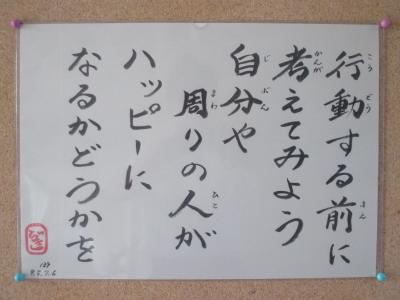 行動する前に
考えてみよう
自分や
周りの人が
ハッピーに
なるかどうかを
こう どう まえ
かんが
じ ぶん
まわ ひと